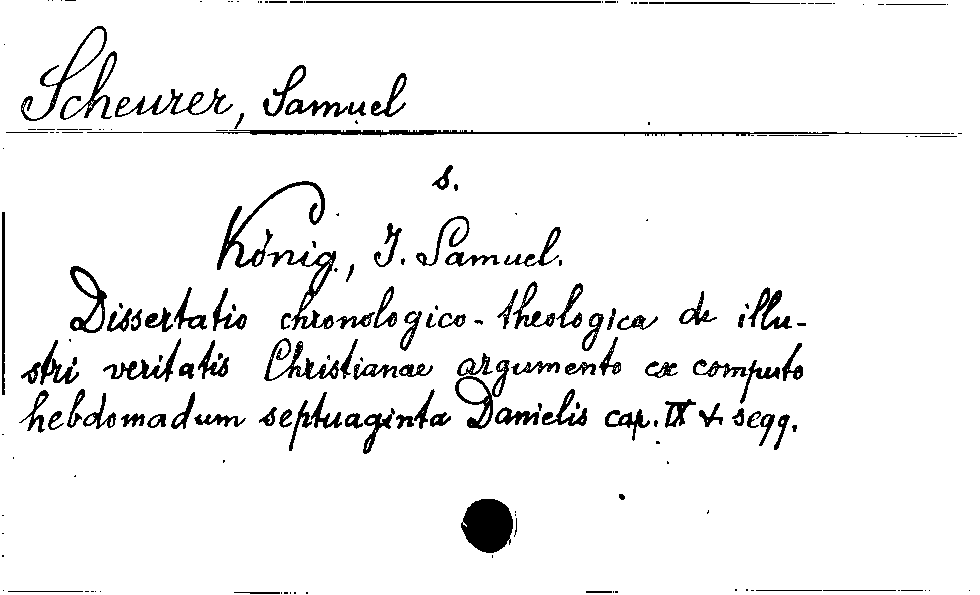 Scheurer, Samuel
s.
König, J. Samuel.
Dissertatio chronologico-theologica de illu-
stri veritatis Christianae argumento ex computo
hebdomadum septuaginta Danielis cap. IX v. seqq.